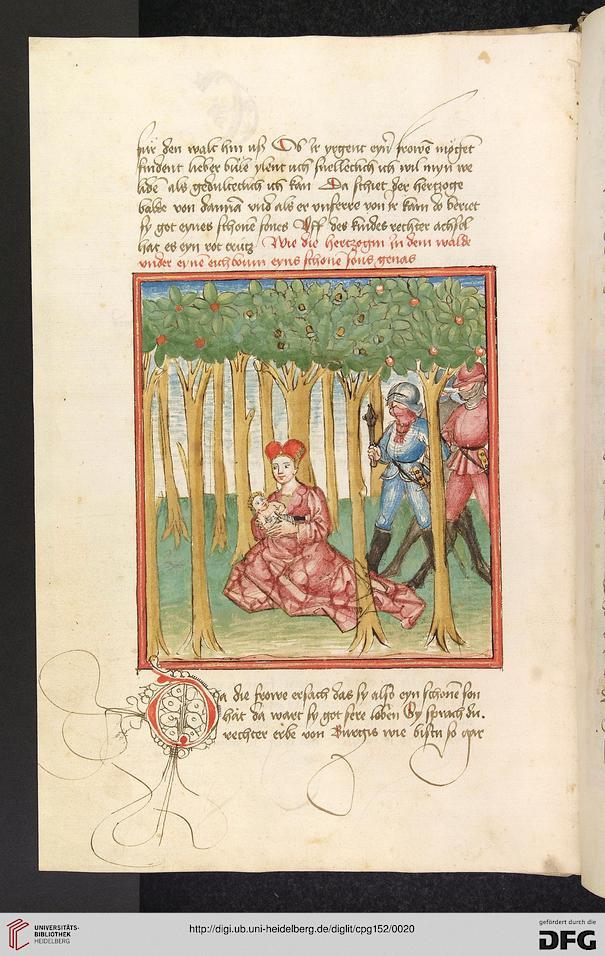 für den walt hin uß Ob ir yrgent eyn frowe möget
findent lieber bube ylent uch snelleclich ich wil myn we
lide als gedulteclich ich kan Da schiet der hertzoge
balde von danna vnd als er vnferre von ir kam do beriet
sy got eynes schone sones Vff des kindes rechter achsel
hat es eyn rot crutz Wie die hertzogin in dem walde
vnder eyne eichboum eyns schone sons genas
Da die frowe ersach das sy also eyn schone son
hat da wart sy got sere loben Sy sprach du
rechter erbe von Burgis wie bistu so gar
UNIVERSITÄTS-
BIBLIOTHEK
HEIDELBERG
http://digi.ub.uni-heidelberg.de/diglit/cpg152/0020
gefördert durch die
DFG